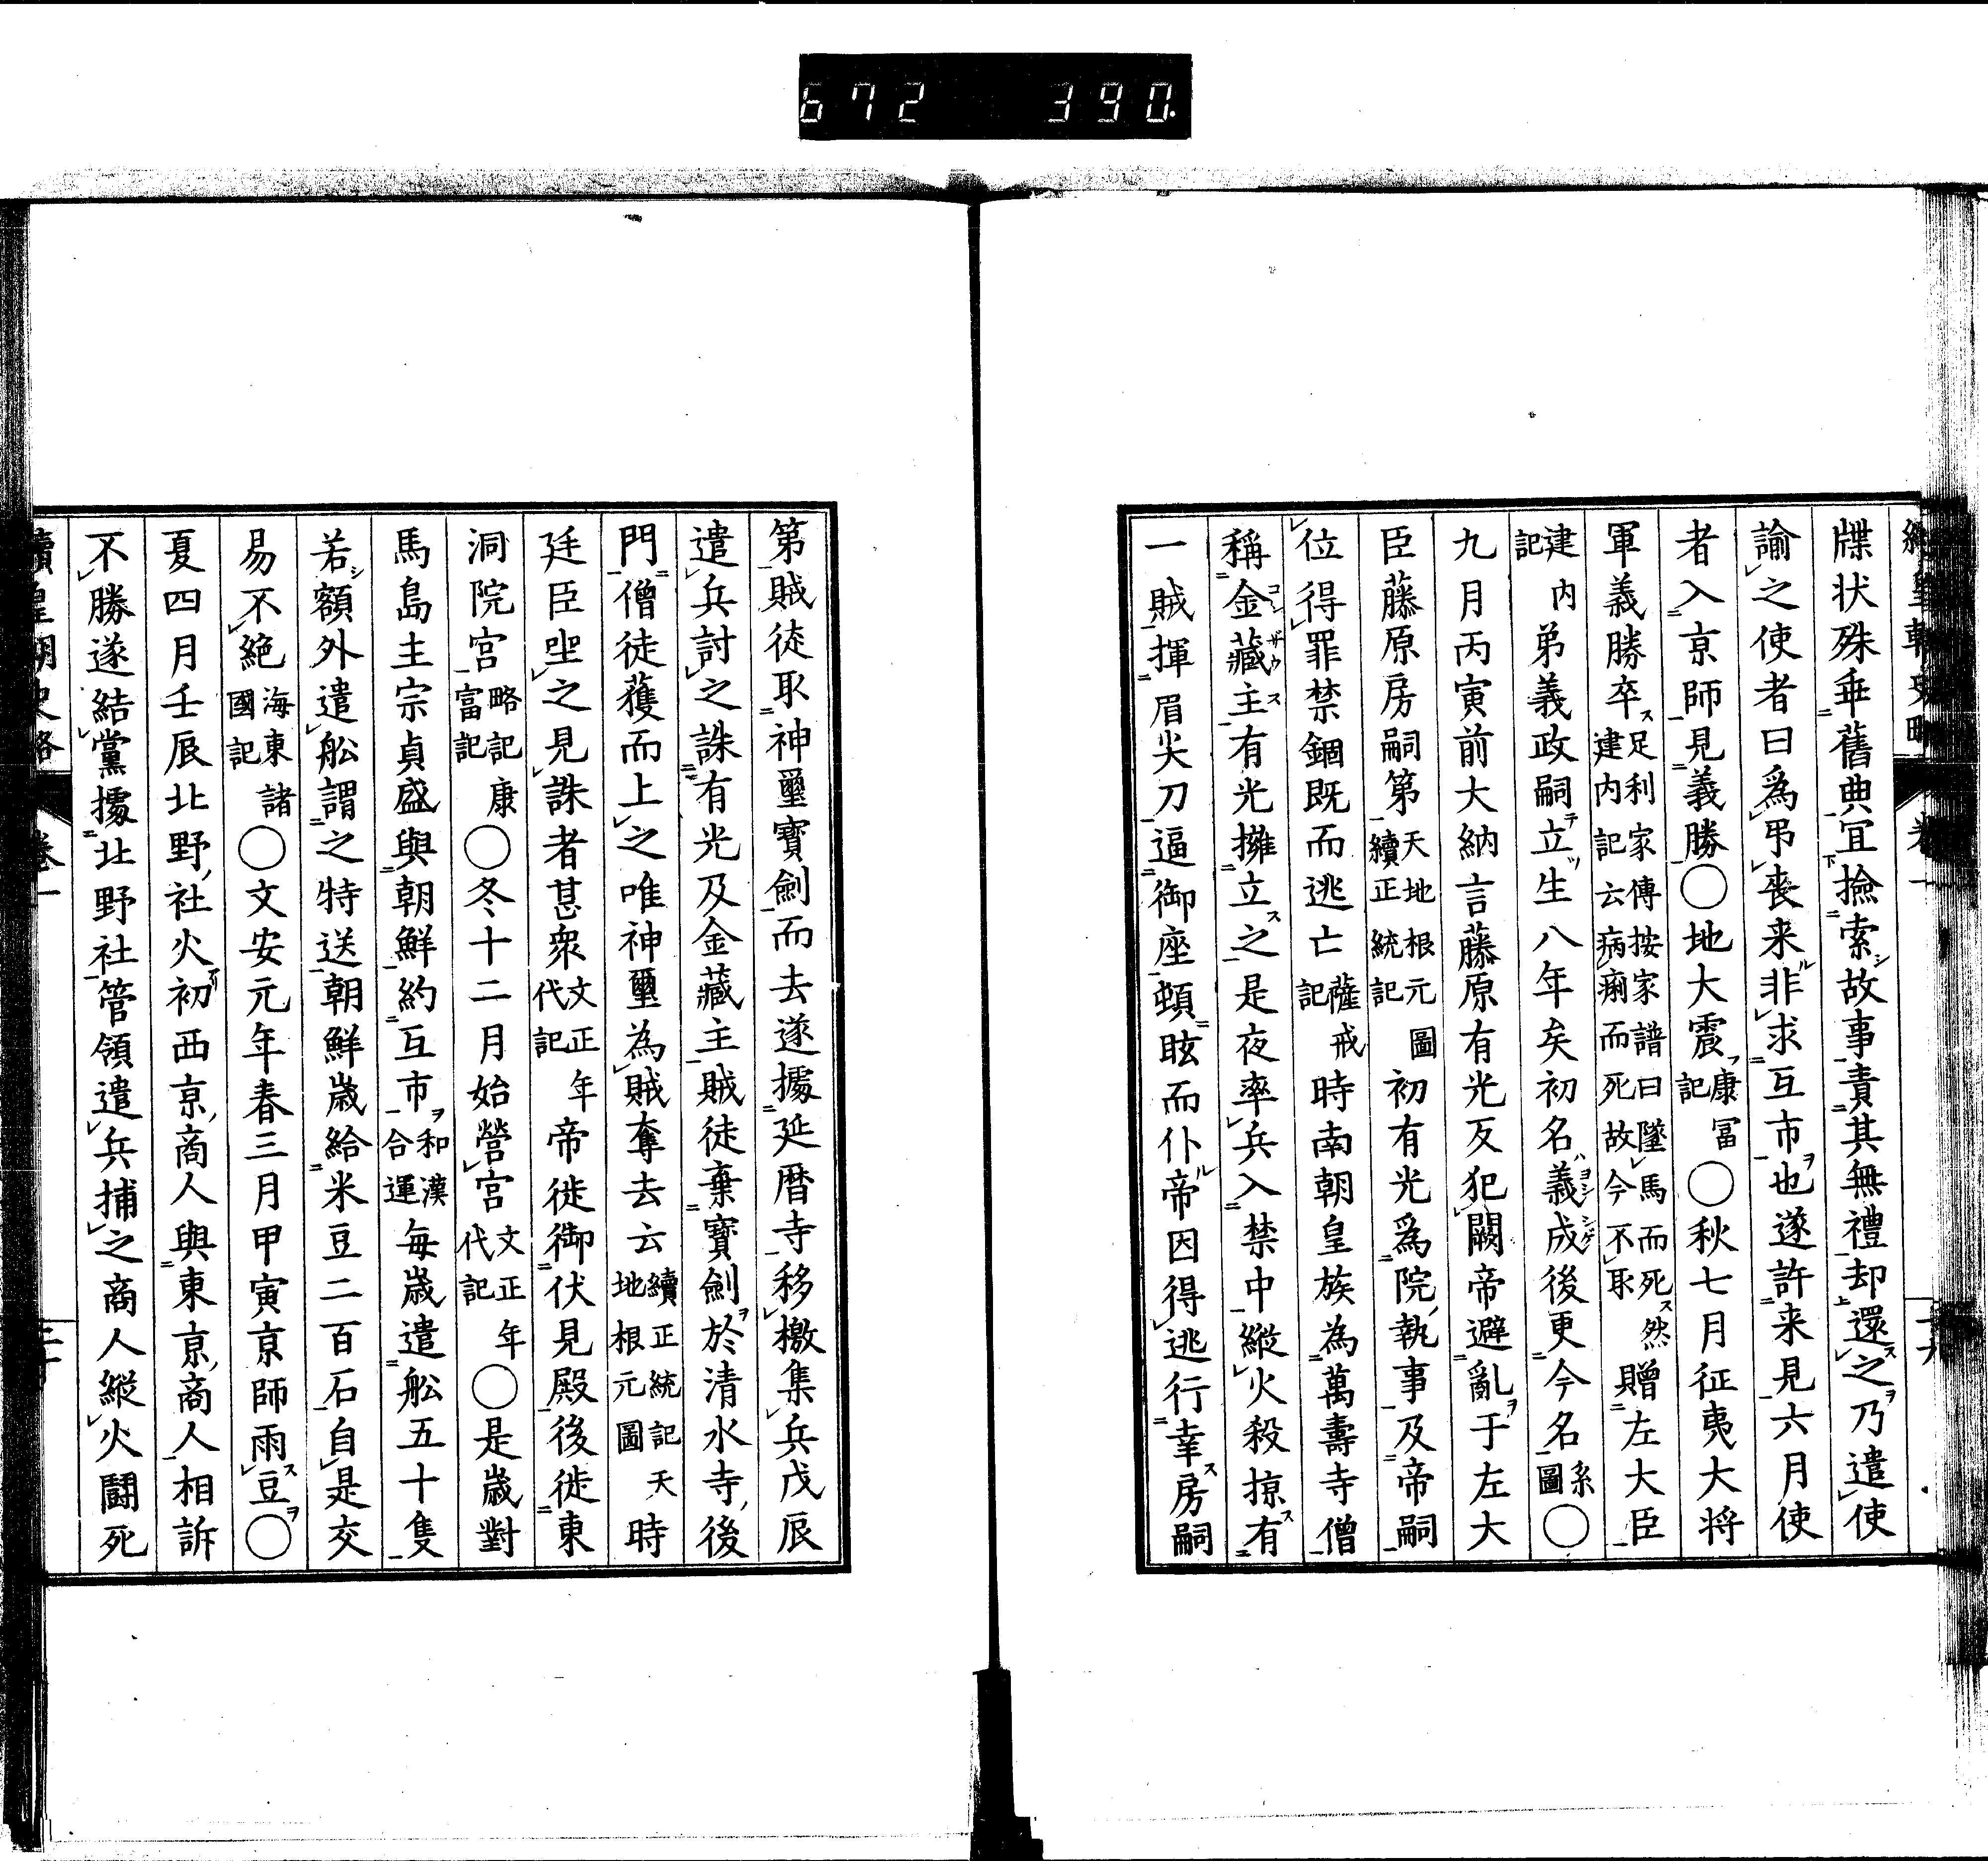 672 390.
牒状殊乖舊典宜撿索故事責其無禮却還之乃遣使
諭之使者曰爲弔喪来非求互市也遂許来見六月使
者入京師見義勝〇地大震康冨記〇秋七月征夷大将
軍義勝卒足利家傳按家譜曰墜馬而死然建内記云病痢而死故今不取贈左大臣
建内記弟義政嗣立生八年矣初名義成後更今名系圖〇
九月丙寅前大納言藤原有光反犯闕帝避亂于左大
臣藤原房嗣第天地根元圖續正統記初有光爲院執事及帝嗣
位得罪禁錮既而逃亡薩戒記時南朝皇族為萬壽寺僧
稱金藏主有光擁立之是夜率兵入禁中縱火殺掠有
一賊揮眉尖刀逼御座頓眩而仆帝因得逃行幸房嗣
第賊徒取神璽寶劍而去遂據延暦寺移檄集兵戊辰
遣兵討之誅有光及金藏主賊徒棄寶劍於清水寺後
門僧徒獲而上之唯神璽為賊奪去云續正統記天地根元圖時
廷臣坐之見誅者甚衆文正年代記帝徙御伏見殿後徙東
洞院宮略記康富記〇冬十二月始營宮文正年代記〇是歳對
馬島主宗貞盛與朝鮮約互市和漢合運毎歳遣舩五十隻
若額外遣舩謂之特送朝鮮歳給米豆二百石自是交
易不絶海東諸國記〇文安元年春三月甲寅京師雨豆〇
夏四月壬辰北野社火初西京商人與東京商人相訴
不勝遂結黨據北野社管領遣兵捕之商人縱火鬪死
續皇朝史略 卷一